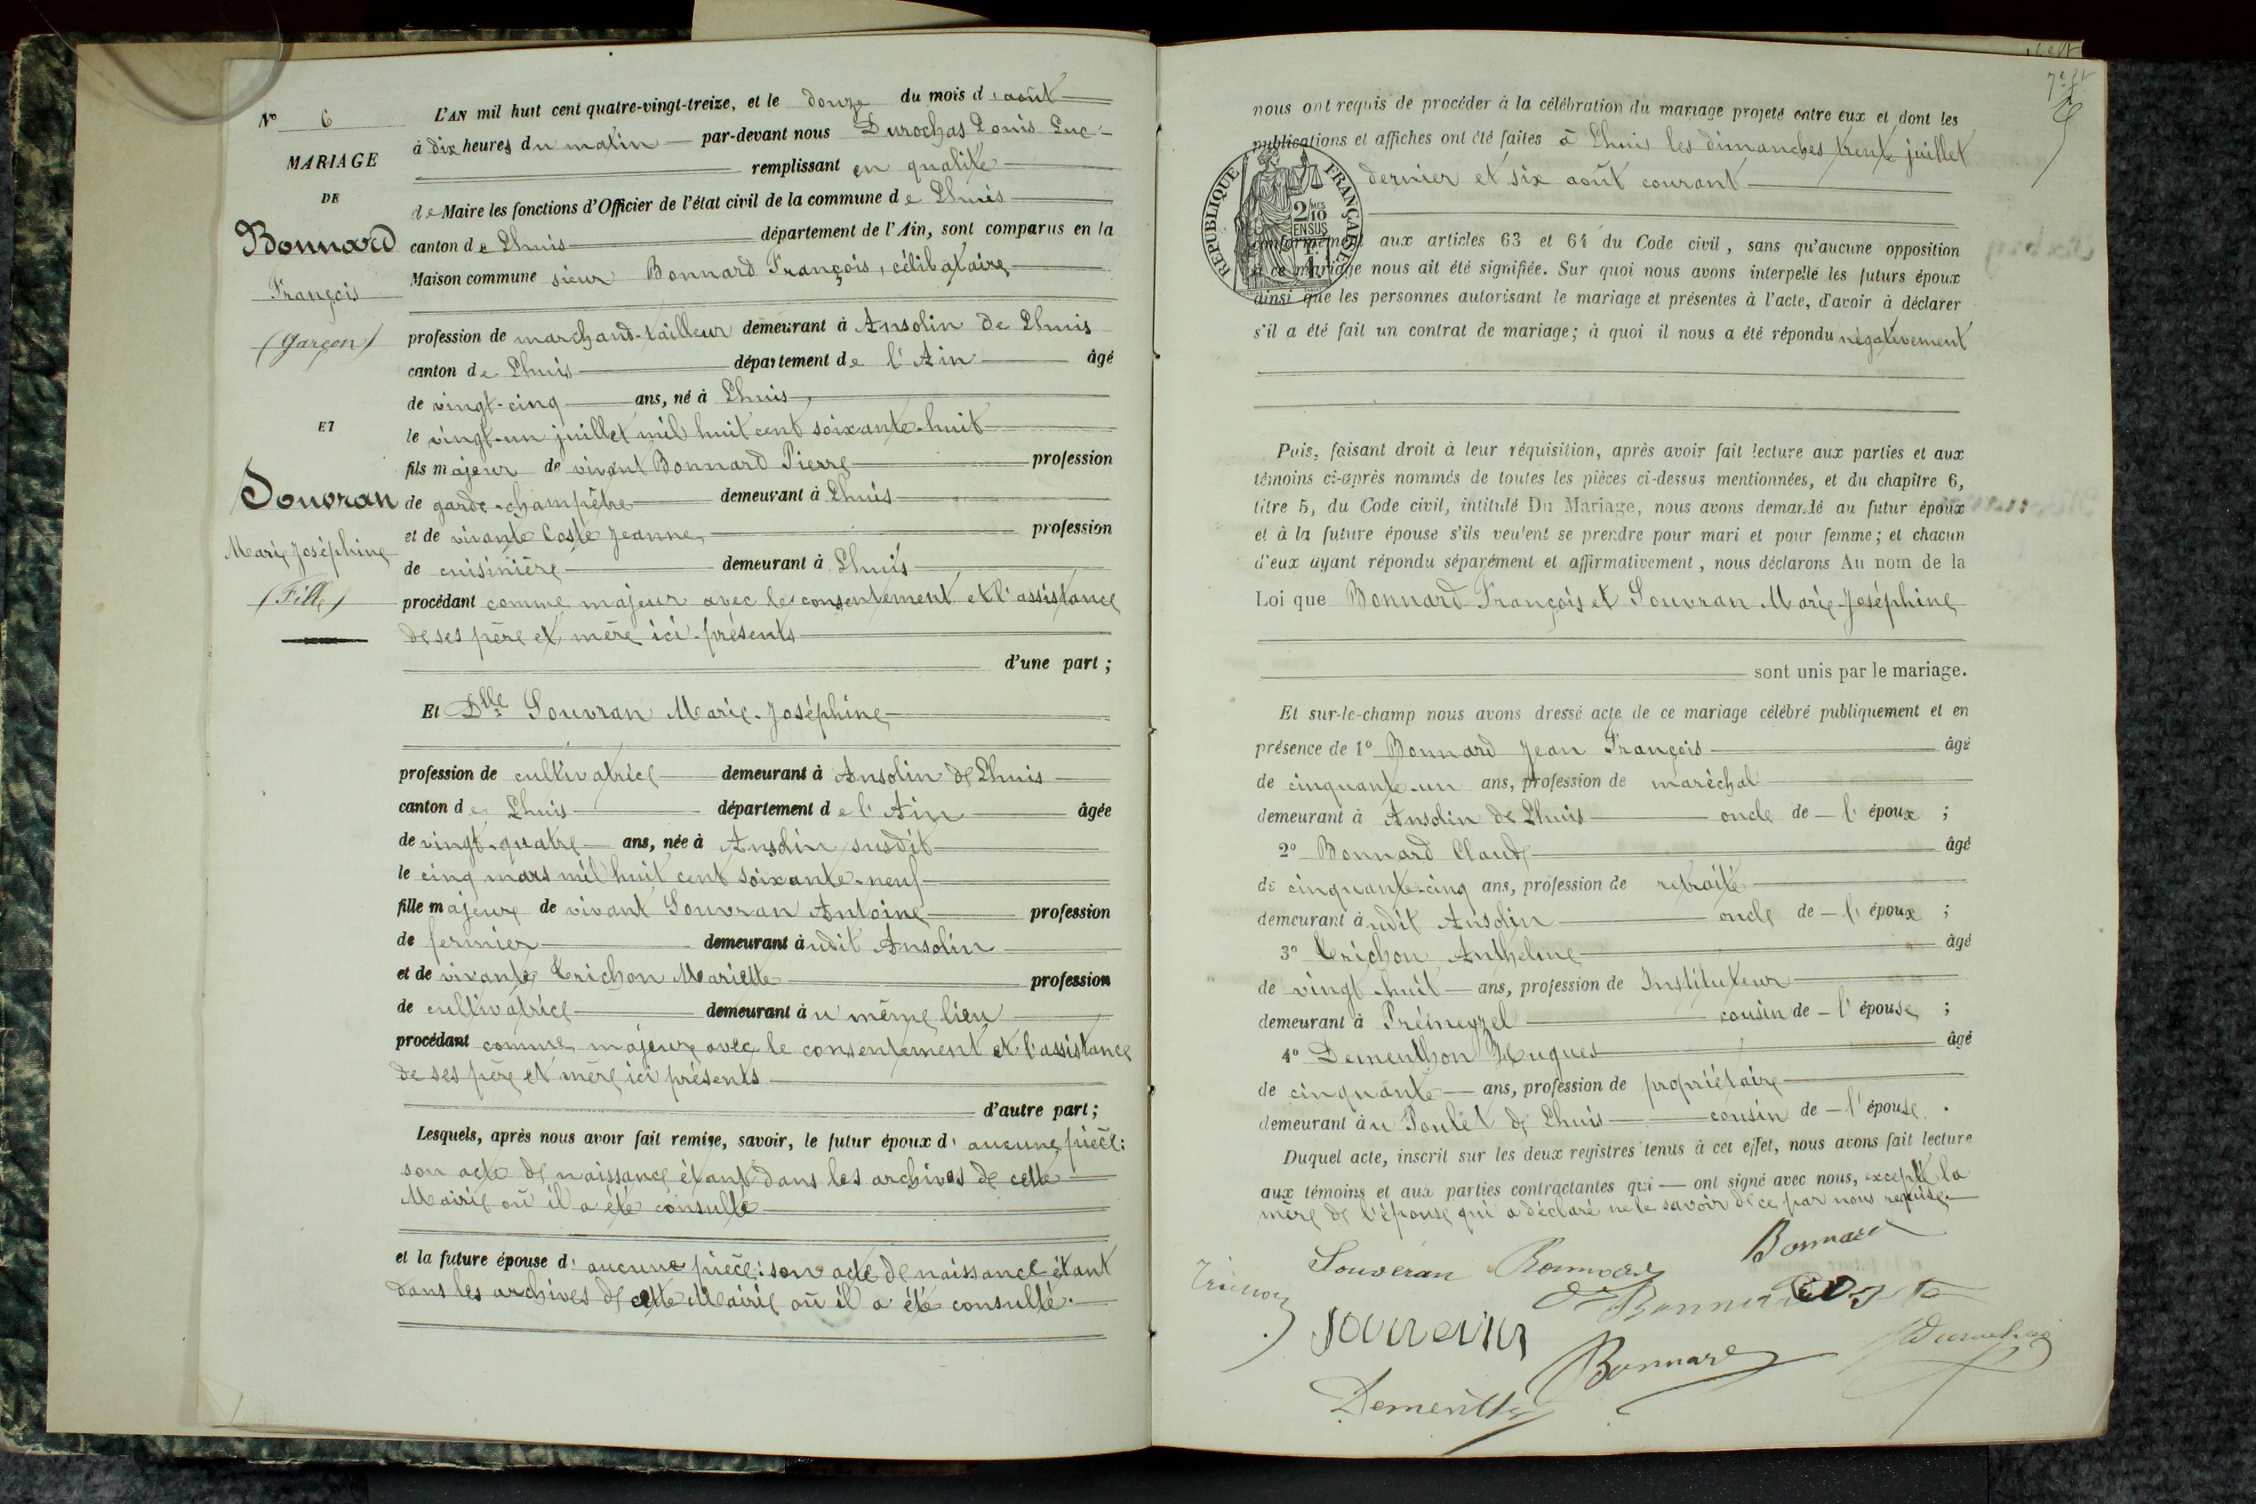 N° 6
MARIAGE
DE
Bonnard
François
(Garçon)
ET
Souvran
Marie Joséphine
(Fille)
L'AN mil huit cent quatre-vingt-treize, et le douze du mois d'août
à dix heures du matin par-devant nous Durochas Louis Luc
remplissant en qualité
de Maire les fonctions d'Officier de l'état civil de la commune de Lhuis
canton de Lhuis département de l'Ain, sont comparus en la
Maison commune sieur Bonnard François, célibataire
profession de marchand-tailleur demeurant à Ansolin de Lhuis
canton de Lhuis département de l'Ain âgé
de vingt-cinq ans, né à Lhuis
le vingt-un juillet mil huit cent soixante-huit
fils majeur de vivant Bonnard Pierre profession
de garde-champêtre demeurant à Lhuis
et de vivante Coste Jeanne profession
de cuisinière demeurant à Lhuis
procédant comme majeur avec le consentement et l'assistance
de ses père et mère ici présents
d'une part ;
Et Dlle Souvran Marie-Joséphine
profession de cultivatrice demeurant à Ansolin de Lhuis
canton de Lhuis département de l'Ain âgée
de vingt-quatre ans, née à Ansolin susdit
le cinq mars mil huit cent soixante-neuf
fille majeure de vivant Souvran Antoine profession
de fermier demeurant àudit Ansolin
et de vivante Trichon Mariette profession
de cultivatrice demeurant àu même lieu
procédant comme majeure avec le consentement et l'assistance
de ses père et mère ici présents
d'autre part ;
Lesquels, après nous avoir fait remise, savoir, le futur époux d'aucune pièce :
son acte de naissance étant dans les archives de cette
Mairie où il a été consulté
et la future épouse d'aucune pièce : son acte de naissance étant
dans les archives de cette Mairie où il a été consulté.
nous ont requis de procéder à la célébration du mariage projeté entre eux et dont les
publications et affiches ont été faites à Lhuis les dimanches trente juillet
dernier et six août courant
RÉPUBLIQUE FRANÇAISE
2 MES
10
EN SUS
conformément aux articles 63 et 64 du Code civil, sans qu'aucune opposition
à ce mariage nous ait été signifiée. Sur quoi nous avons interpellé les futurs époux
ainsi que les personnes autorisant le mariage et présentes à l'acte, d'avoir à déclarer
s'il a été fait un contrat de mariage ; à quoi il nous a été répondu négativement
Puis, faisant droit à leur réquisition, après avoir fait lecture aux parties et aux
témoins ci-après nommés de toutes les pièces ci-dessus mentionnées, et du chapitre 6,
titre 5, du Code civil, intitulé Du Mariage, nous avons demandé au futur époux
et à la future épouse s'ils veulent se prendre pour mari et pour femme ; et chacun
d'eux ayant répondu séparément et affirmativement, nous déclarons Au nom de la
Loi que Bonnard François et Souvran Marie-Joséphine
sont unis par le mariage.
Et sur-le-champ nous avons dressé acte de ce mariage célébré publiquement et en
présence de 1° Bonnard Jean François âgé
de cinquante-un ans, profession de maréchal
demeurant à Ansolin de Lhuis oncle de l'époux ;
2° Bonnard Claude âgé
de cinquante-cinq ans, profession de retraité
demeurant àudit Ansolin oncle de l'époux ;
3° Trichon Anthelme âgé
de vingt-huit ans, profession de Instituteur
demeurant à Prémeyzel cousin de l'épouse ;
4° Dementhon Hugues âgé
de cinquante ans, profession de propriétaire
demeurant àu Poulet de Lhuis cousin de l'épouse.
Duquel acte, inscrit sur les deux registres tenus à cet effet, nous avons fait lecture
aux témoins et aux parties contractantes qui ont signé avec nous, excepté la
mère de l'épouse qui a déclaré ne le savoir de ce par nous requise.
Souveran Bonnard Bonnard
Trichon Bonnard Coste
Souvrain Durochas
Bonnard
Dementhon